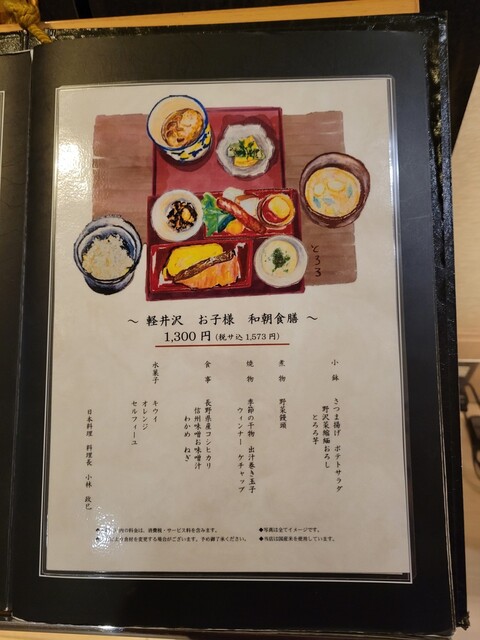 とろろ
～ 軽井沢 お子様 和朝食膳 ～
1,300 円 (税サ込 1,573 円)
小 鉢 さつま揚げ ポテトサラダ
野沢菜縮緬おろし
とろろ芋
煮 物 野菜饅頭
焼 物 季節の干物 出汁巻き玉子
ウィンナー ケチャップ
食 事 長野県産コシヒカリ
信州味噌お味噌汁
わかめ ねぎ
水菓子 キウイ
オレンジ
セルフィーユ
日本料理 料理長 小林 政巳
内の料金は、消費税・サービス料を含みます。
食材を変更する場合がございます。予め御了承ください。
◆写真は全てイメージです。
◆当店は国産米を使用しています。